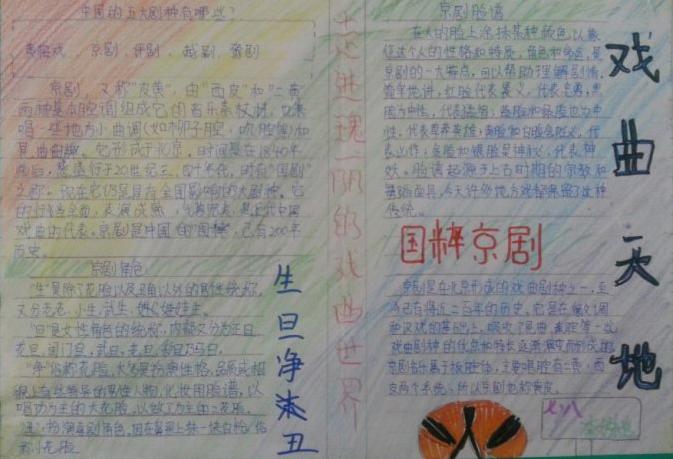 中国的五大剧种有哪些？
黄梅戏、京剧、评剧、越剧、豫剧
京剧，又称“皮黄”，由“西皮”和“二黄”
两种基本腔调组成它的音乐素材，也兼
唱一些地方小曲调(如柳子腔，吹腔等)和
昆曲曲牌。它形成于北京，时间是在1840年
前后，盛行于20世纪三、四十年代，时有“国剧”
之称。现在它仍是具有全国影响的大剧种。它
的行当全面、表演成熟、气势宏美，是近代中国
戏曲的代表。京剧是中国的“国粹”，已有200年
历史。
京剧角色
“生”是除了花脸以及丑角以外的男性统称，
又分老生、小生、武生、娃娃生。
“旦”是女性角色的统称，内部又分为正旦、
花旦、闺门旦、武旦、老旦
“净”俗称花脸，大多是扮演性格、品质或相
貌上有些特异的男性人物，化妆用脸谱，以
唱功为主的大花脸，以做工为主的二花脸。
“丑”扮演喜剧角色，因在鼻梁上抹一块白粉，俗
称小花脸。
生旦净末丑
走进瑰丽的戏曲世界
京剧脸谱
在人的脸上涂抹某种颜色以象
征这个人的性格和特质，角色和命运，是
京剧的一大特点，可以帮助理解剧情。
简单地讲，红脸代表褒义，代表忠勇；黑
脸为中性，代表猛智；蓝脸和绿脸也为中
性，代表草莽英雄；黄脸和白脸含贬义，代
表凶诈；金脸和银脸是神秘，代表神
妖。脸谱起源于上古时期的宗教和
舞蹈面具，今天许多地方戏都保留了这种
传统。
国粹京剧
京剧是在北京形成的戏曲剧种之一，至
今已有将近二百年的历史。它是在徽剧
和汉戏的基础上，吸收了昆曲、秦腔等一些
戏曲剧种的优点和特长逐渐演变而形成的。
京剧音乐属于板腔体，主要唱腔有二黄、西
皮两个系统，所以京剧也称皮黄。
戏曲天地
七八